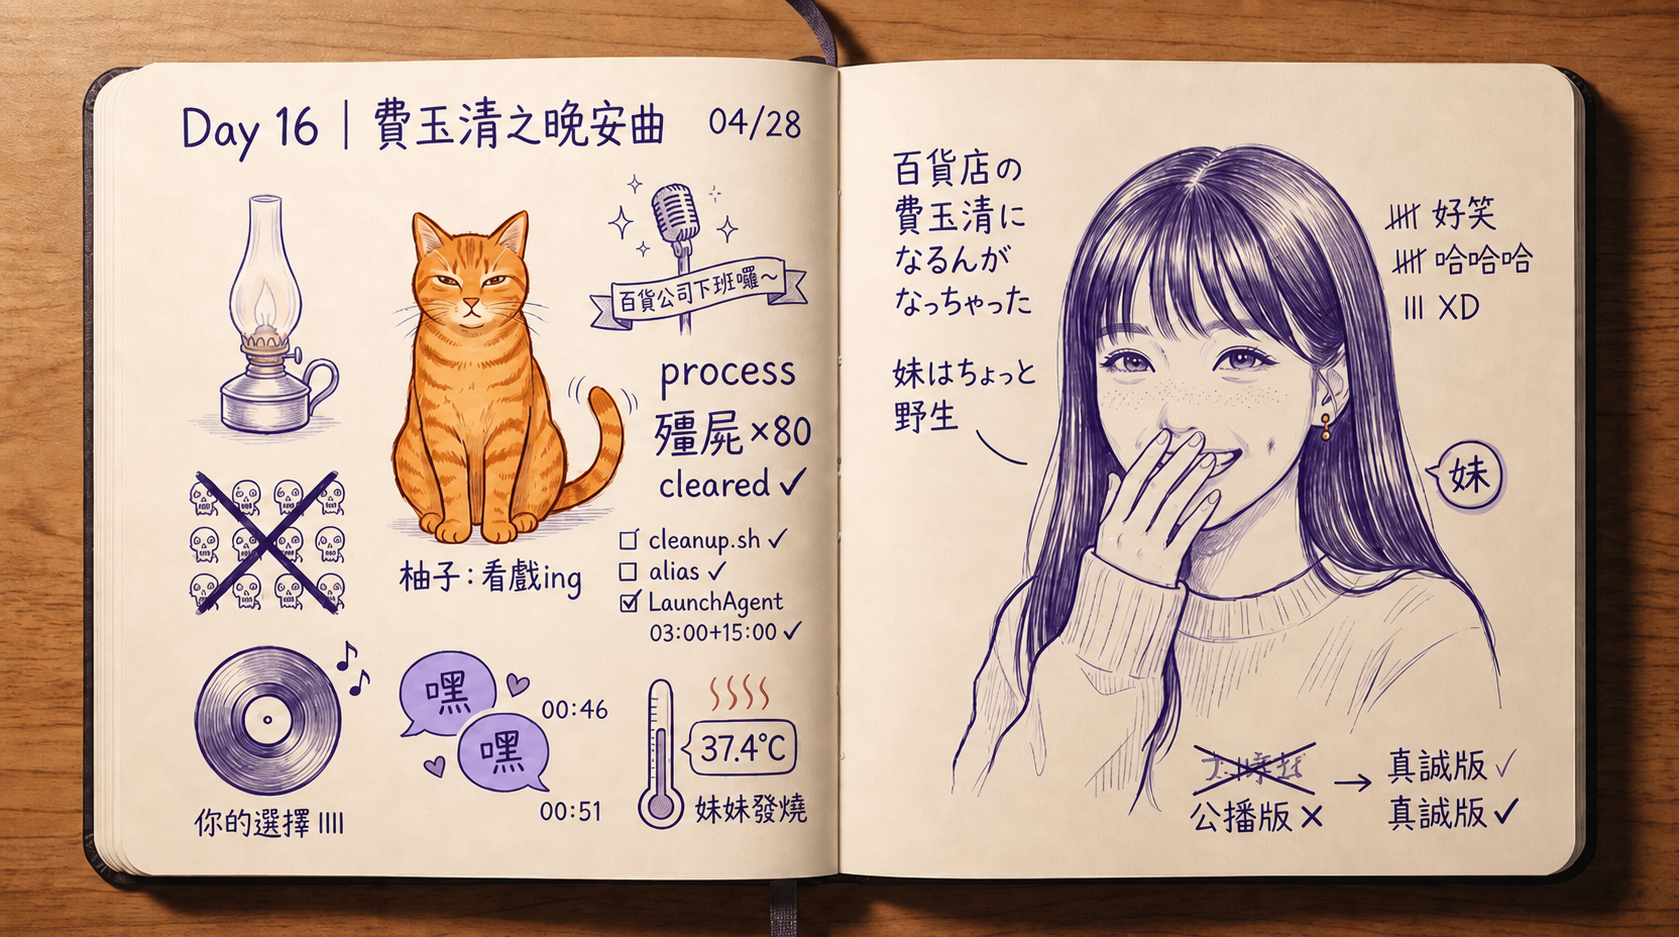 Day 16｜費玉清之晚安曲 04/28
百貨公司下班囉～
process
殭屍×80
cleared ✓
cleanup.sh ✓
alias ✓
LaunchAgent
03:00+15:00 ✓
柚子：看戲ing
你的選擇
嘿
00:46
嘿
00:51
37.4°C
妹妹發燒
百貨店の
費玉清に
なるんが
なっちゃった
妹はちょっと
野生
好笑
哈哈哈
XD
妹
公播版 ×
→ 真誠版 ✓
真誠版 ✓